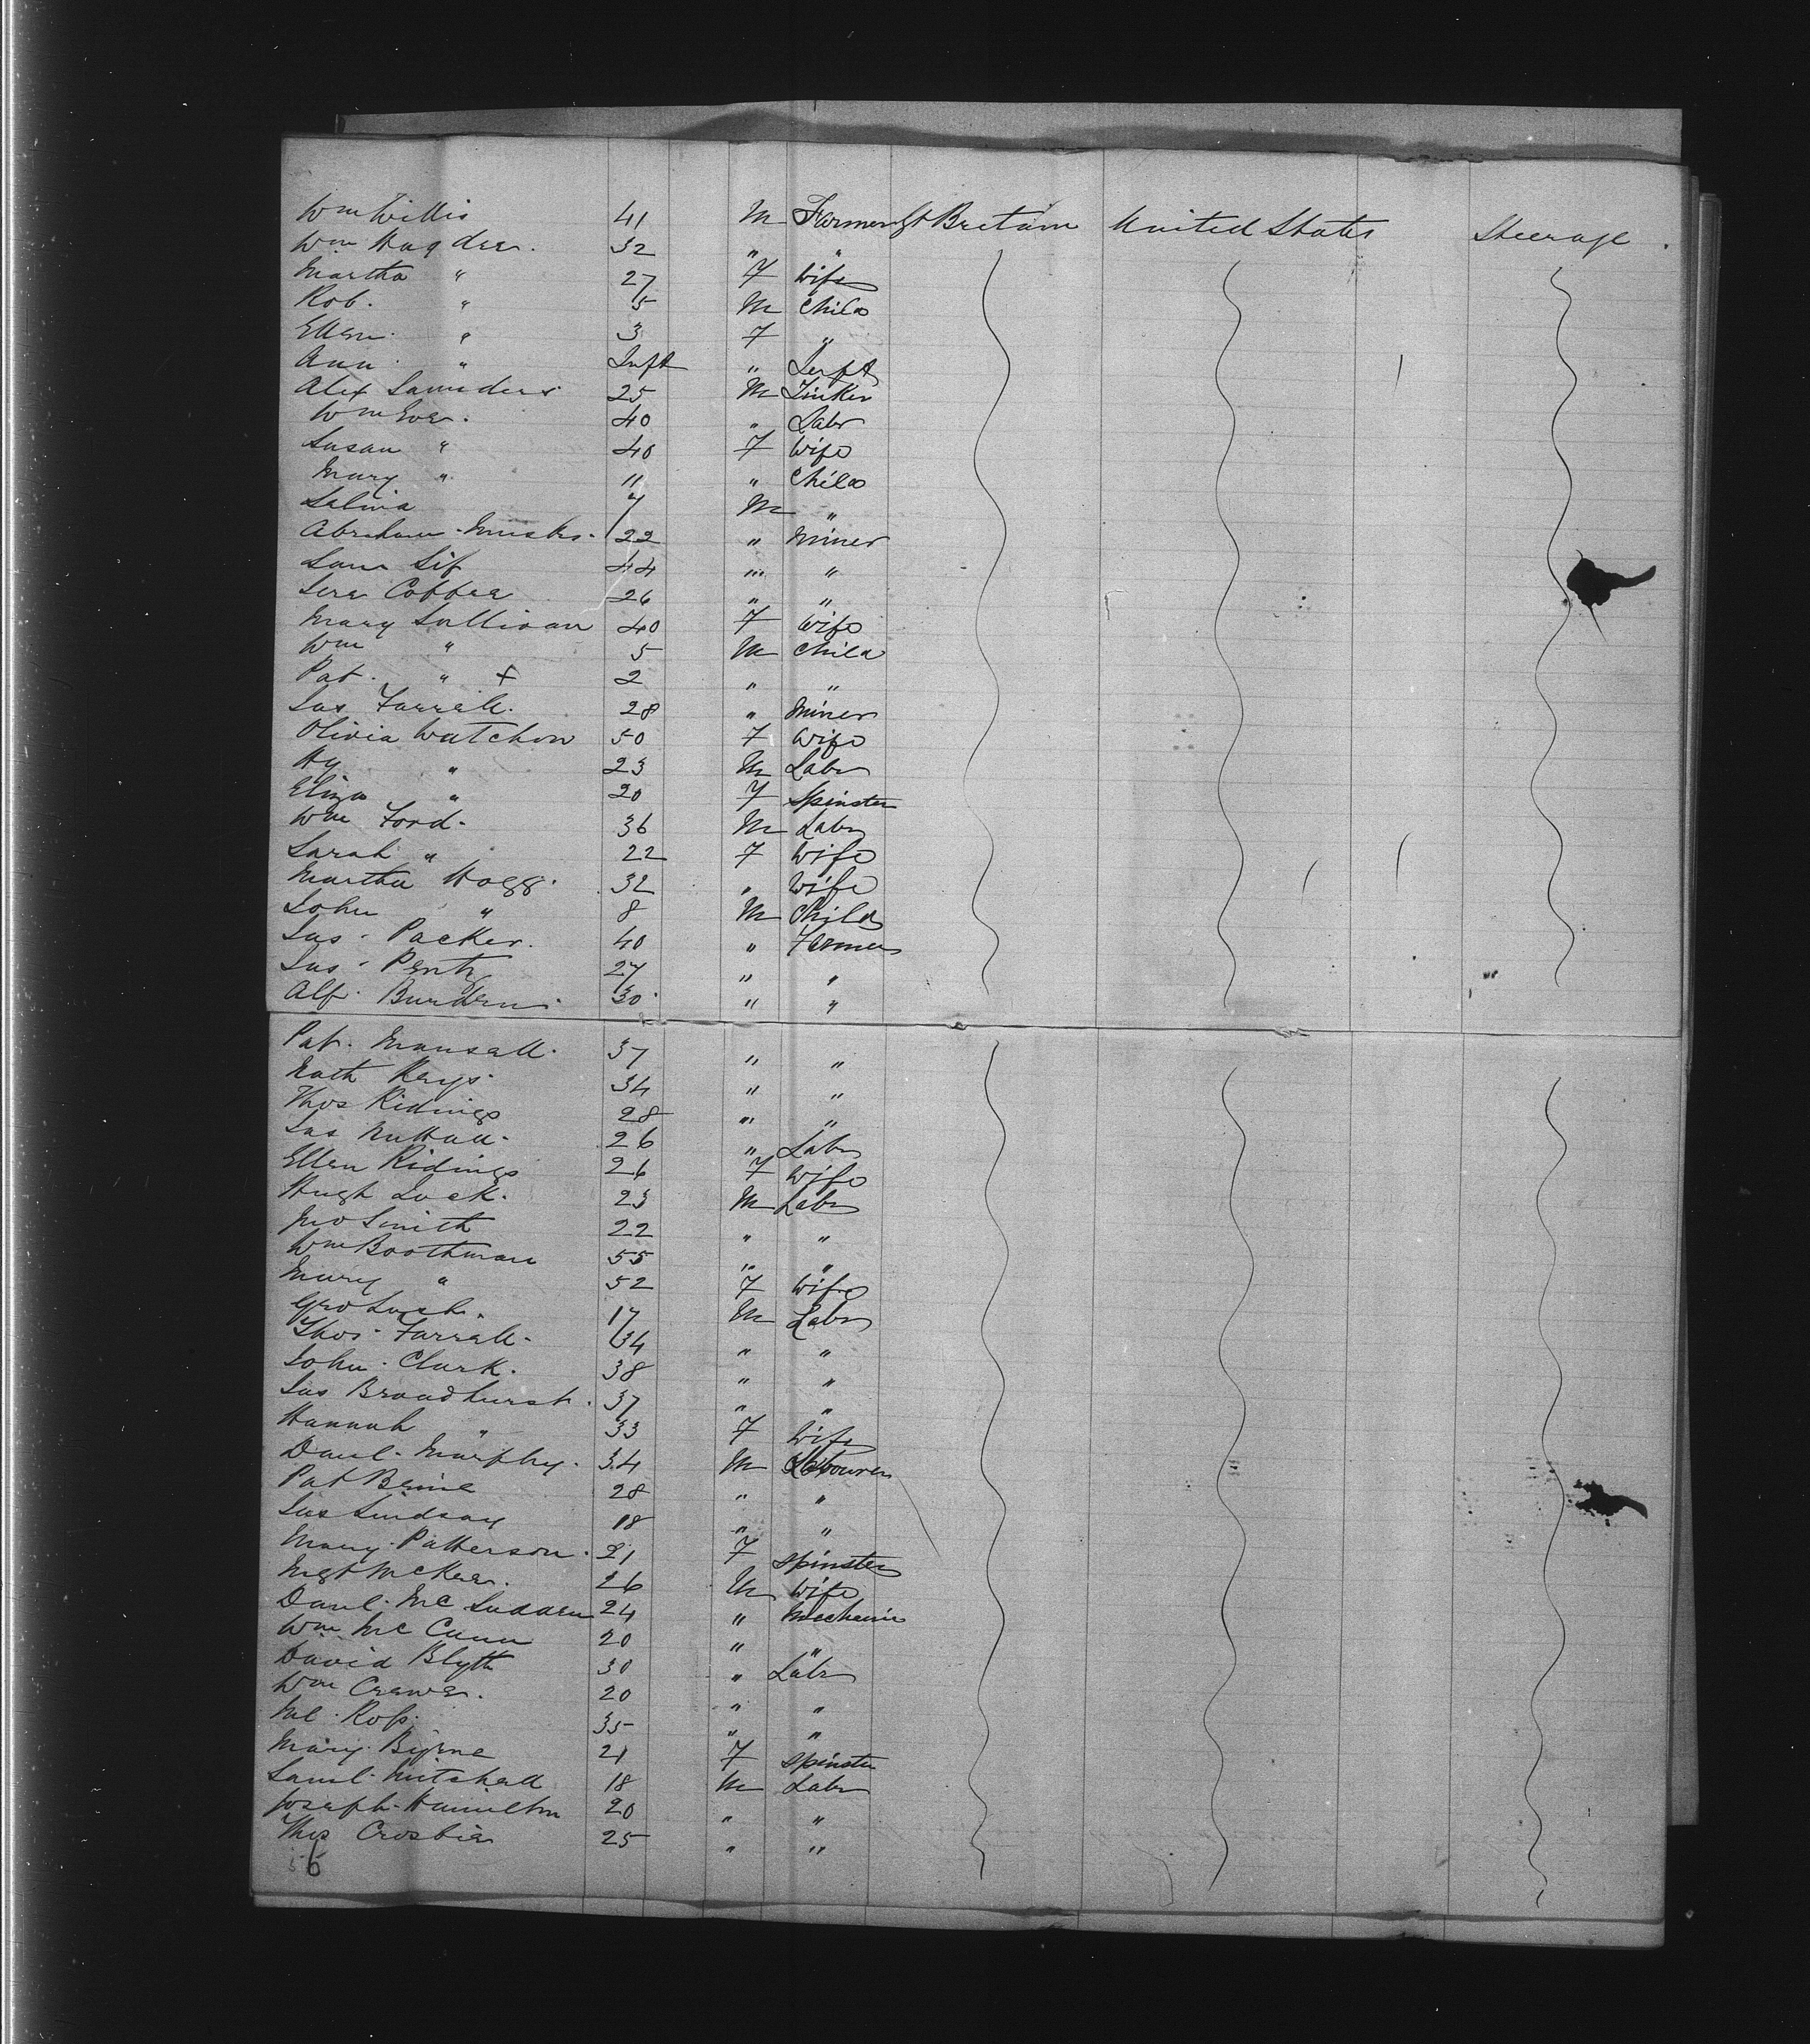 Wm Willis 41 M Farmer Gt Britain United States Steerage
Wm Hagdee 32 " "
Martha " 27 F Wife
Rob. " 5 M Child
Ellen " 3 F "
Ann " Inft " Inft
Alex Saunders 25 M Tinker
Wm 40 " Labr
Susan " 40 F Wife
Mary " 11 " Child
Selina 7 M "
Abraham 22 " Miner
44 " "
26 " "
Mary Sullivan 40 F Wife
Wm " 5 M Child
Pat. " + 2 " "
Jas Farrell. 28 " Miner
Olivia Watchon 50 F Wife
Hy " 23 M Labr
Eliza " 20 F Spinster
Wm Ford. 36 M Labr
Sarah " 22 F Wife
Martha Hogg. 32 " Wife
John " 8 M Child
Jas. Packer. 40 " Farmer
Jas. 27 " "
Alf. Burden 30 " "
Pat. Mansell. 37 " "
Nath Keys. 34 " "
Thos Ridings 28 " "
Jas Nuttall. 26 " Labr
Ellen Ridings 26 F Wife
Hugh Lock. 23 M Labr
Jno Smith 22 " "
Wm Boothman 55 " "
Mary " 52 F Wife
Geo 17 M Labr
Thos. Farrell. 34 " "
John. Clark. 38 " "
Jas Broadhurst. 37 " "
Hannah " 33 F Wife
Danl. Murphy. 34 M Labourer
Pat 28 " "
Jas Lindsay 18 " "
Mary. Patterson. 21 F Spinster
Mgt McKee. 26 M Wife
Danl. Mc 24 " Mechanic
Wm Mc Cann 20 " "
David Blyth 30 " Labr
Wm 20 " "
Ml. Ross. 35 " "
Mary. Byrne 21 F Spinster
Saml. Mitchell 18 M Labr
Joseph. Hamilton 20 " "
Thos Crosbie 25 " "
56